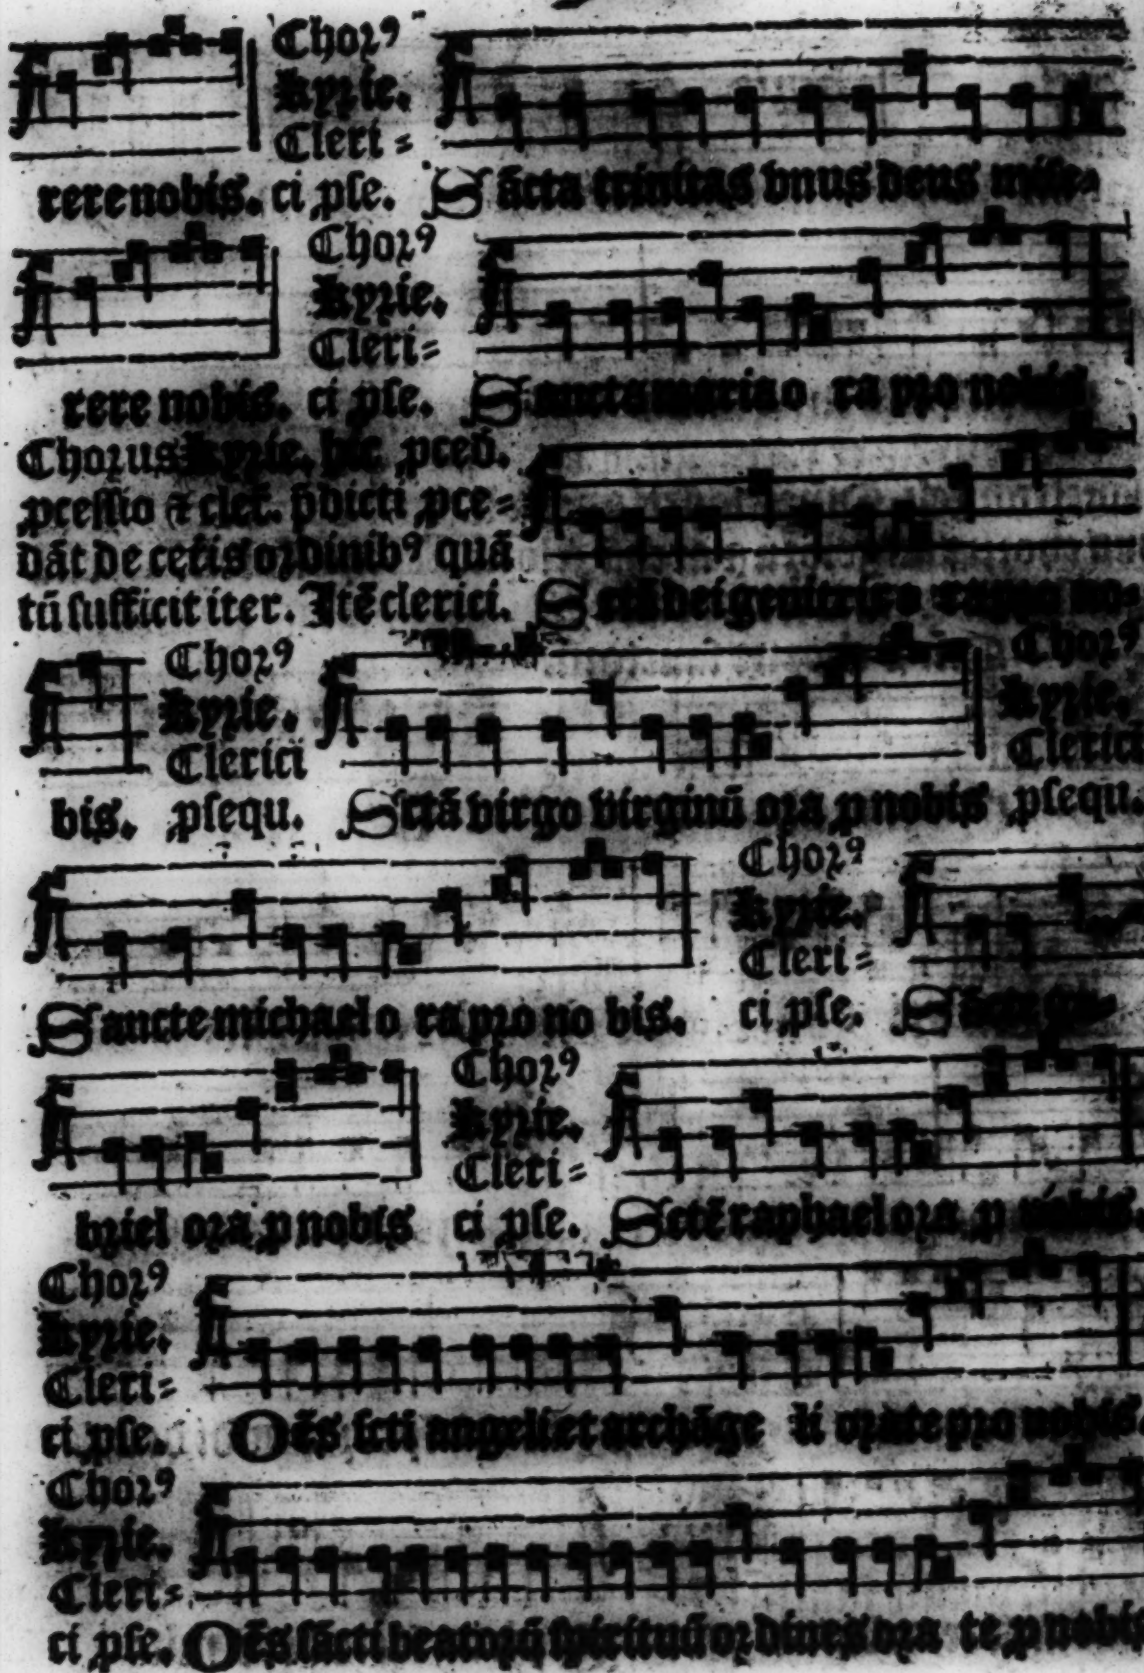 Choꝛꝰ
Kyꝛie.
Cleri⸗
rere nobis. ci ꝓſe. Sācta trinitas vnus deus miſe⸗
Choꝛꝰ
Kyꝛie.
Cleri⸗
rere nobis. ci ꝓſe. Sancta maria o ra pꝛo nobis
Choꝛus Kyꝛie. hic ꝓced̄.
ꝓceſſio ⁊ cler̄. p̄dicti ꝓce⸗
dāt de cet̄is oꝛdinibꝰ quā
tū ſufficit iter. Itē clerici. Sctā dei genitrix o no⸗
Choꝛꝰ
Kyꝛie.
Clerici
Choꝛꝰ
Kyꝛie.
Clerici
bis. ꝓſequ. Sctā virgo virginū oꝛa ꝓ nobis ꝓſequ.
Choꝛꝰ
Kyꝛie.
Cleri⸗
Sancte michael o ra pꝛo no bis. ci ꝓſe. Sācte ga⸗
Choꝛꝰ
Kyꝛie.
Cleri⸗
bꝛiel oꝛa ꝓ nobis ci ꝓſe. Sctē raphael oꝛa ꝓ nobis.
Choꝛꝰ
Kyꝛie.
Cleri⸗
ci ꝓſe. Oēs ſcti angeli et archāge li oꝛate pꝛo nobis
Choꝛꝰ
Kyꝛie.
Cleri⸗
ci ꝓſe. Oēs ſācti beatoꝛū ſpirituū oꝛdines oꝛa te ꝓ nobis